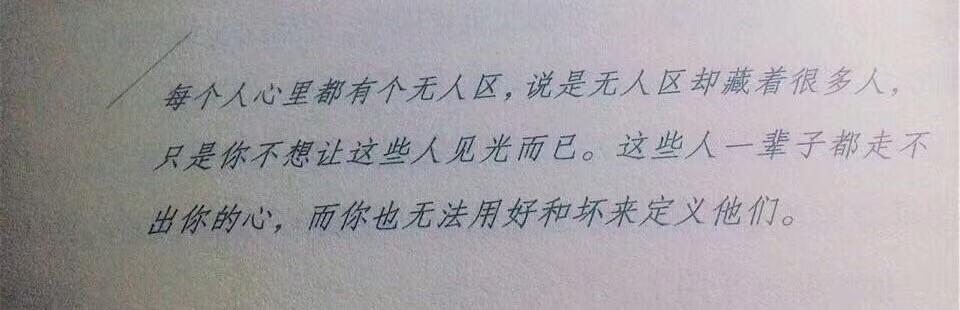 每个人心里都有个无人区，说是无人区却藏着很多人，
只是你不想让这些人见光而已。这些人一辈子都走不
出你的心，而你也无法用好和坏来定义他们。